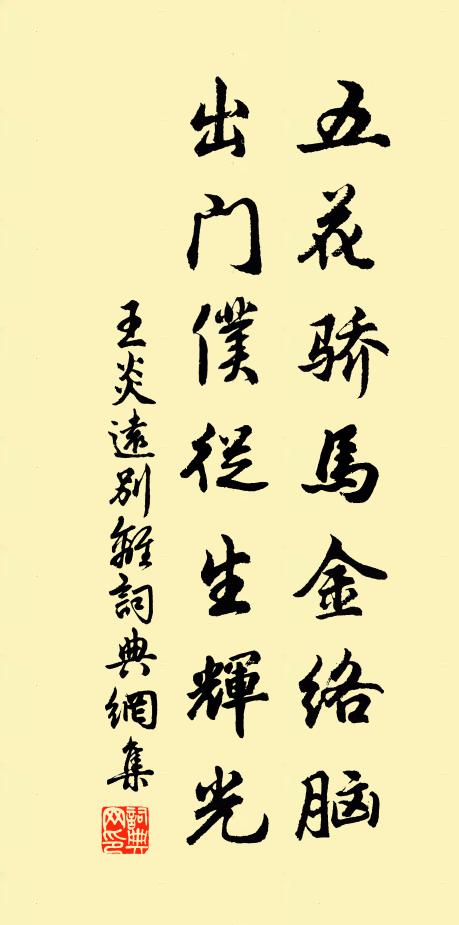 五花骄馬金络脑
出门僕從生輝光
王炎遠別離詞典網集
詞典网印